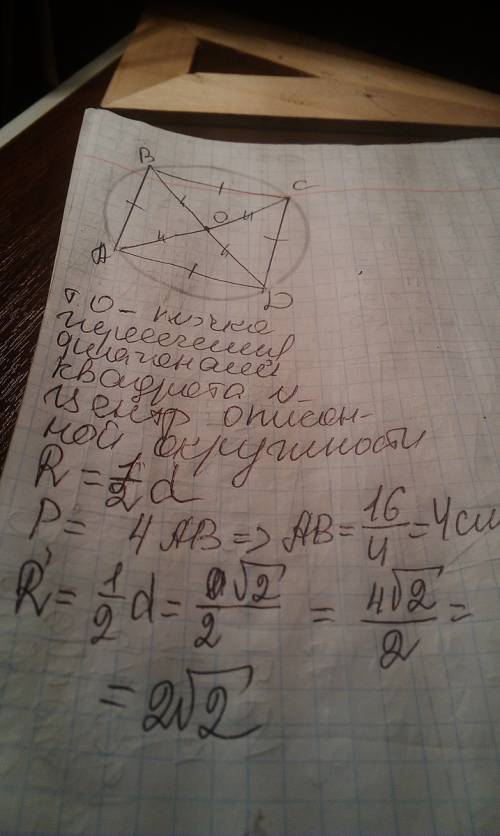 B
C
O
A
D
т О - точка
пересечения
диагоналей
квадрата и
центр описан-
ной окружности
R = 1/2 d
P = 4 AB => AB = 16/4 = 4 см
R = 1/2 d = a√2/2 = 4√2/2 =
= 2√2